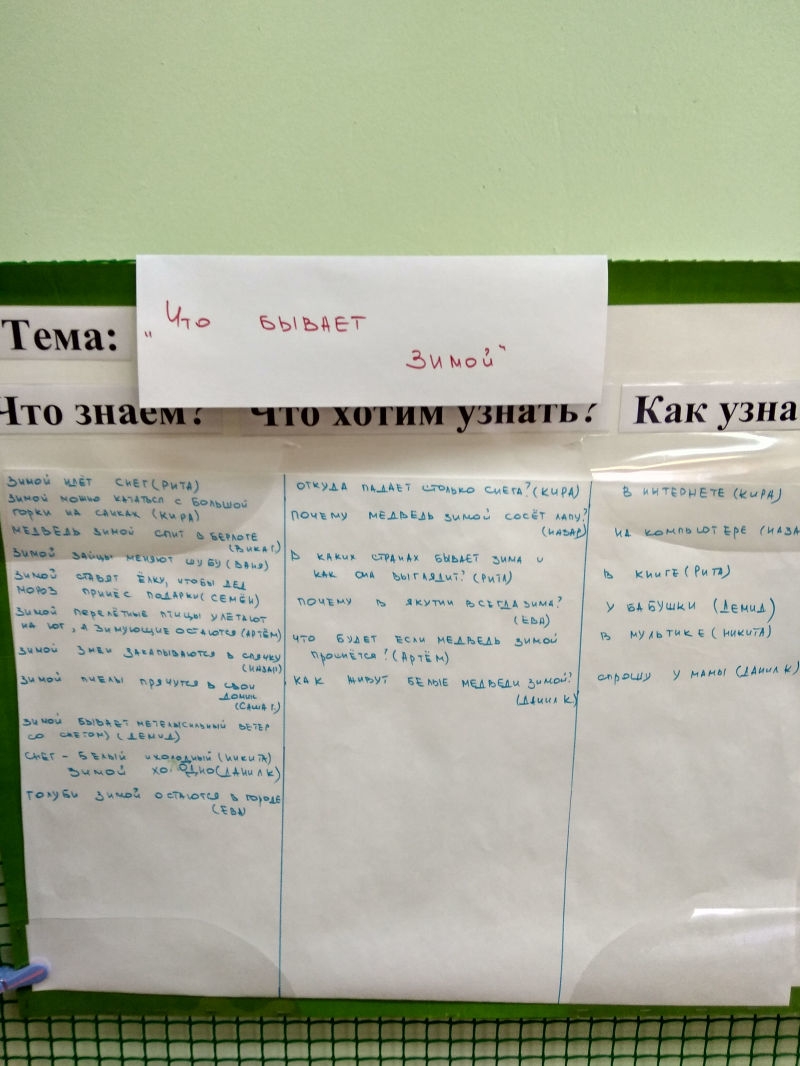 Тема:
"Что бывает
зимой"
Что знаем?
Что хотим узнать?
Как узна
Зимой идёт снег (Рита)
Зимой можно кататься с большой
горки на санках (Кира)
Медведь зимой спит в берлоге
(Вика Г.)
Зимой зайцы меняют шубу (Ваня)
Зимой ставят ёлку, чтобы дед
мороз принёс подарки (Семён)
Зимой перелётные птицы улетают
на юг, а зимующие остаются (Артём)
Зимой змеи закапываются в спячку
(Назар)
Зимой пчелы прячутся в свои
домик
(Саша Г.)
Зимой бывает метель (сильный ветер
со снегом) (Демид)
Снег - белый и холодный (Никита)
Зимой холодно (Данил К)
Голуби зимой остаются в городе
(Ева)
Откуда падает столько снега? (Кира)
Почему медведь зимой сосёт лапу?
(Назар)
В каких странах бывает зима и
как она выглядит? (Рита)
Почему в Якутии всегда зима?
(Ева)
Что будет если медведь зимой
проснётся? (Артём)
Как живут белые медведи зимой?
(Данил К)
В интернете (Кира)
На компьютере (Наза
В книге (Рита)
У бабушки (Демид)
В мультике (Никита)
Спрошу у мамы (Данил К)